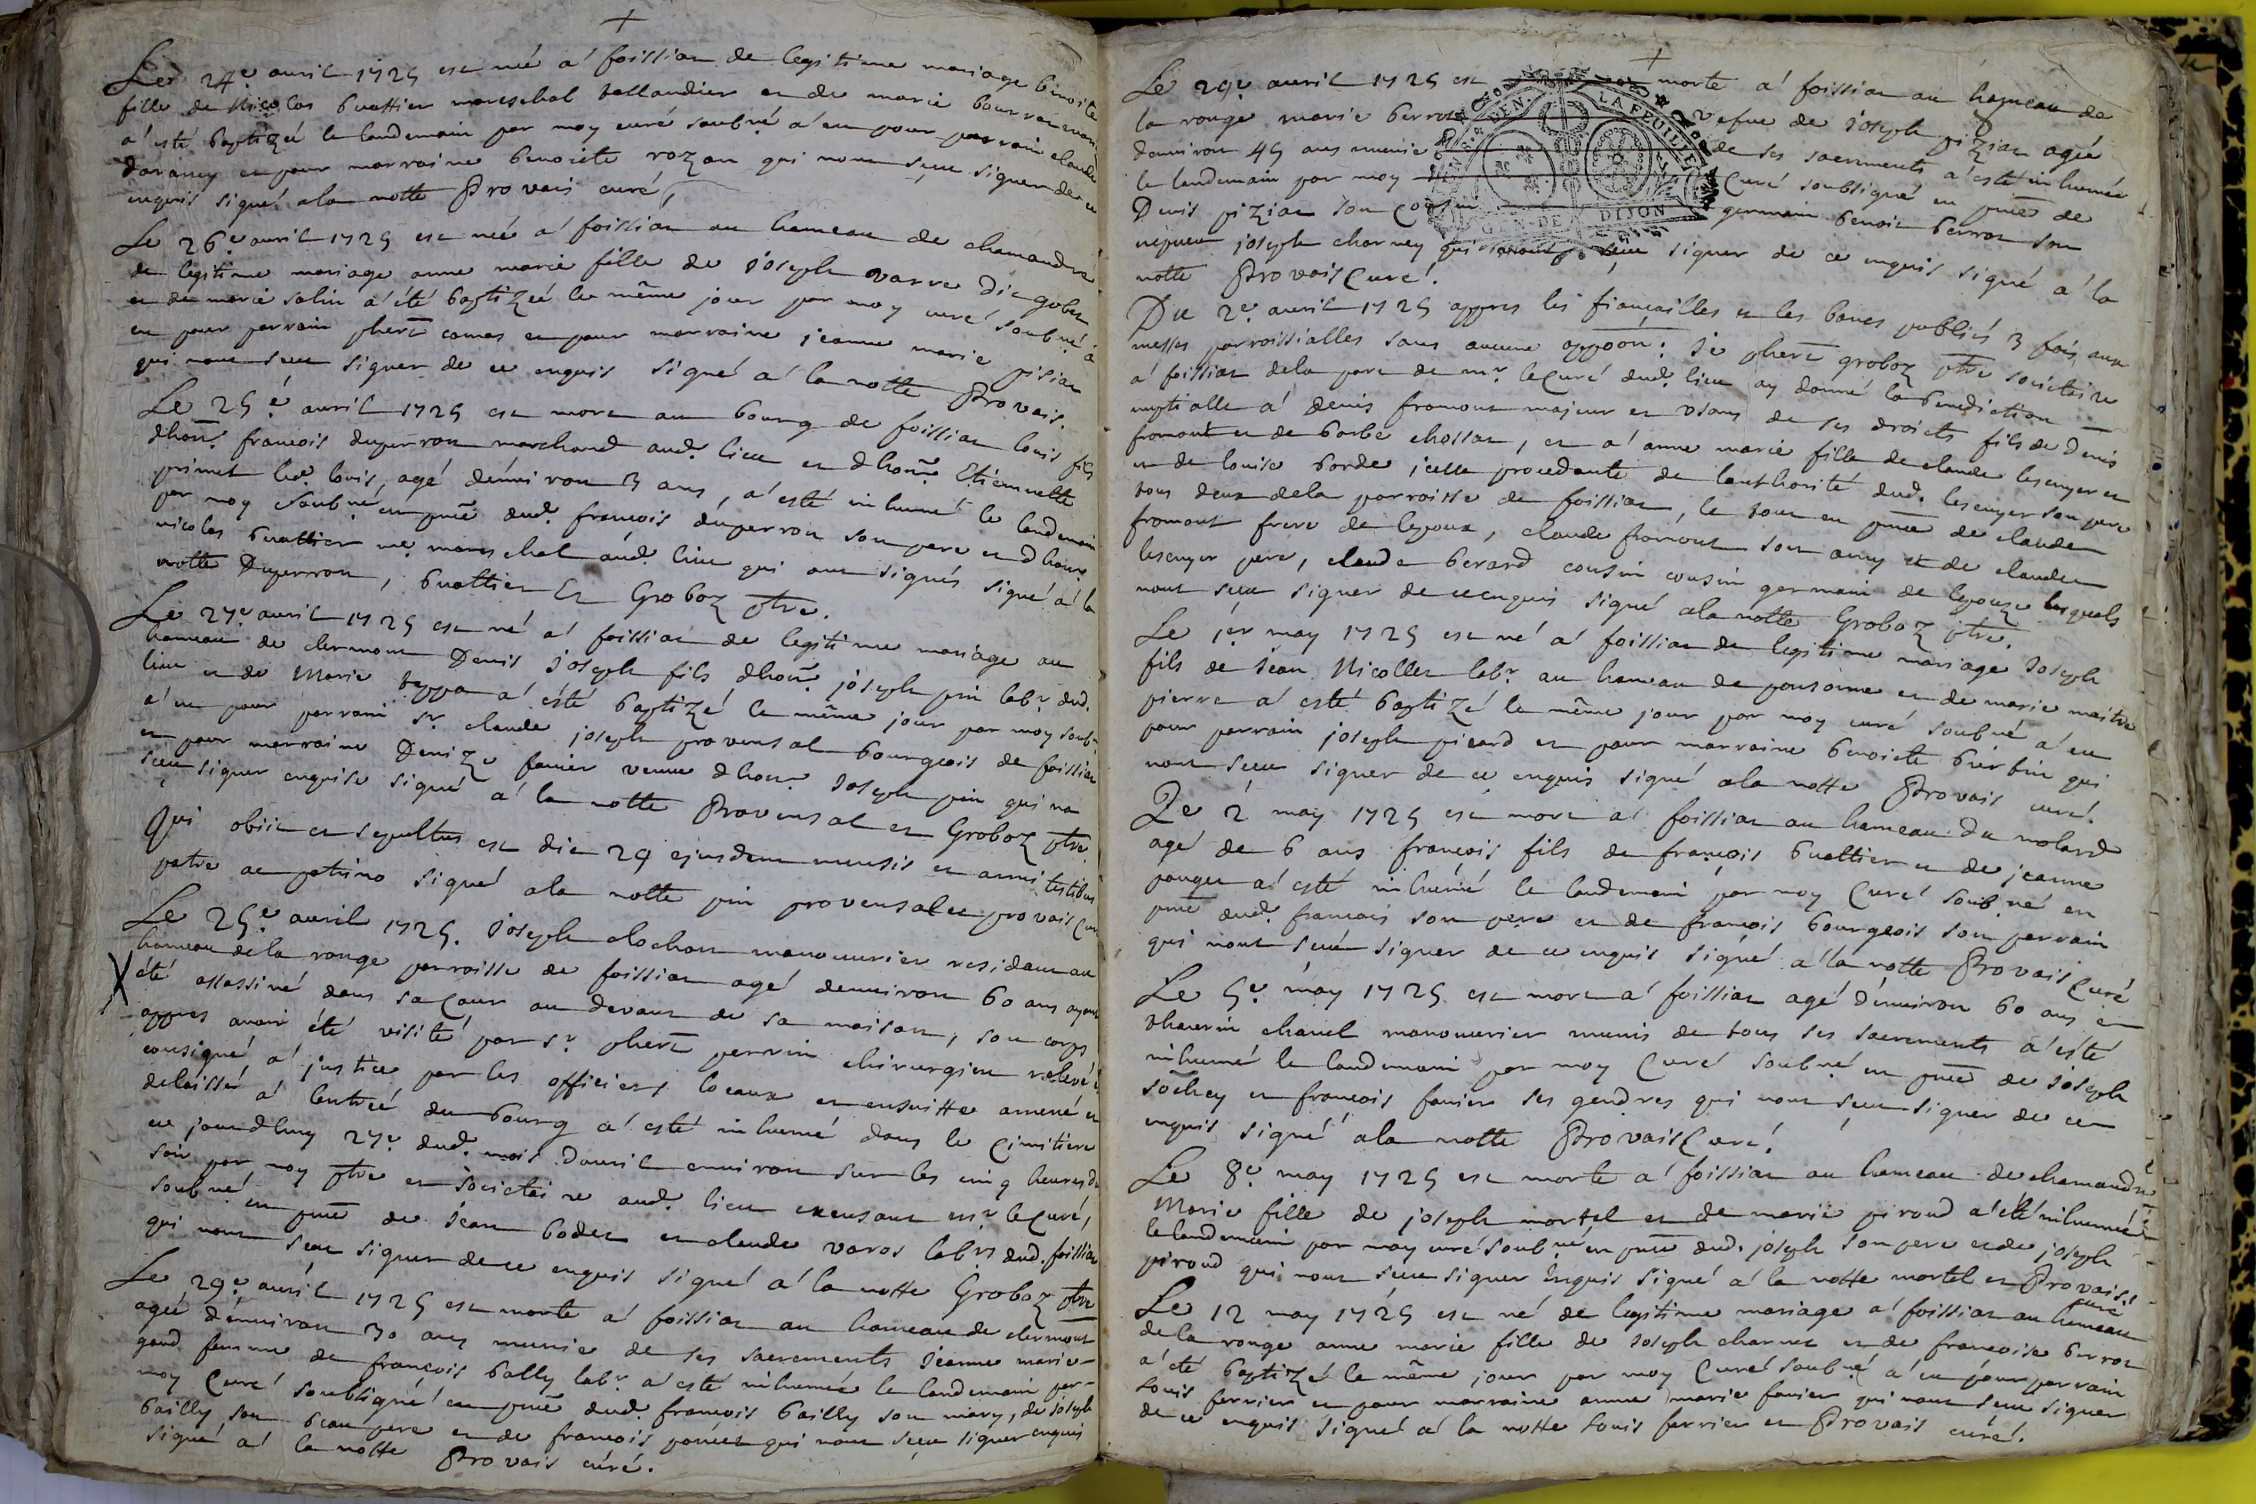 Le 24e auril 1725 est née a foissiat de legitime mariage benoite
fille de Nicolas buattier mareschal tallandier et de marie bourrai
a esté baptizée le landemain par moy curé soubné a eu pour parrain claude
et pour marraine benoiste rozan qui nont sceu signer de ce
enquis signé a la notte Provais curé
Le 26e auril 1725 est née a foissiat au hameau de chamandre
de legitime mariage anne marie fille de Joseph varre dit gobet
et de marie solin a été baptizée le même jour par moy curé soubné a
eu pour parrain phert comas et pour marraine jeanne marie pisiat
qui nont sceu signer de ce enquis signé a la notte Provais.
Le 25e auril 1725 est mort au bourg de foissiat louis fils
dhon. francois duperron marchand aud. lieu et dhon. Etiennette
primet led. louis, agé denuiron 3 ans, a esté inhumé le landemain
par moy soubné en pnce dud. francois duperron son pere et dhon.
nicolas buattier me mareschal aud. lieu qui ont signés signé a la
notte Duperron, buattier Et Groboz ptre.
Le 27e auril 1725 est né a foissiat de legitime mariage au
hameau de clermont Denis Joseph fils dhon. joseph pin labr. dud.
lieu et de Marie a été baptizé le même jour par moy soub.
a eu pour parrain sr. claude joseph provensal bourgeois de foissiat
et pour marraine Denize fauier veuue dhon. Joseph pin qui na
sceu signer enquise signé a la notte Provensal et Groboz ptre.
Qui obiit et sepultus est die 29 ejusdem mensis et anni testibus
patre ac patrino signé a la notte pin provensal et provais cur
Le 25e auril 1725. Joseph clochon manouurier residant au
hameau de la rouge parroisse de foissiat agé denuiron 60 ans ayant
été assassiné dans sa cour au devant de sa maison, son corps
appres avoir été visité par sr. phert perrin chirurgien relevé
consigné a justice par les officiers locaux et ensuitte amené et
delaissé a lentrée du bourg a esté inhumé dans le cimitiere
ce jourdhuy 27e dud. mois dauril enuiron sur les cinq heures du
soir par moy ptre et societaire aud. lieu en absent mr. le curé,
soubné en pnce de Jean bodet et claude varos labrs dud. foissiat
qui nont sceu signer de ce enquis signé a la notte Groboz ptre
Le 29e auril 1725 est morte a foissiat au hameau de clermont
agée denuiron 30 ans munie de ses sacrements Jeanne marie
goud femme de francois bally labr. a esté inhumée le landemain par
moy Curé soubsigné en pnce dud. francois bailly son mary, de joseph
bailly son beau pere et de francois poncet qui nont sceu signer enquis
signé a la notte Provais curé.
Le 29e auril 1725 est morte a foissiat au hameau de
la rouge marie berrot vefue de Joseph piziat agée
denuiron 45 ans munie de ses sacrements a esté inhumée
le landemain par moy Curé soubsigné en pnce de
Denis piziat son cousin germain benoit berrot son
nepueu joseph charney qui nont sceu signer de ce enquis signé a la
notte Provais Curé.
GEN. DE DIJON
LA FEUILLE
Du 2e auril 1725 appres les fiançailles et les bancs publiés 3 fois aux
messes parroissialles sans aucune oppoon. Je phert groboz ptre societaire
a foissiat de la part de mr. le Curé dud. lieu ay donné la benediction
nuptialle a denis fromont majeur et usans de ses droicts fils de Denis
fromont et de barbe chossat, et a anne marie fille de claude lescuyer et
et de louise borde jcelle procedante de lauthorité dud. lescuyer son pere
tous deux de la parroisse de foissiat, le tout en pnce de claude
fromont frere de lepoux, claude fromont son amy et de claude
lescuyer pere, claude berard cousin cousin germain de lepouze lesquels
nont sceu signer de ce enquis signé a la notte Groboz ptre.
Le 1er may 1725 est né a foissiat de legitime mariage Joseph
fils de Jean Nicollet labr. au hameau de ponsonne et de marie maitre
pierre a esté baptizé le même jour par moy curé soubné a eu
pour parrain joseph picard et pour marraine benoiste birbin qui
nont sceu signer de ce enquis signé a la notte Provais curé.
Le 2 may 1725 est mort a foissiat au hameau du molard
agé de 6 ans francois fils de francois buattier et de jeanne
ponget a esté inhumé le landemain par moy Curé soubné en
pnce dud. francois son pere et de francois bourgeois son parrain
qui nont sceu signer de ce enquis signé a la notte Provais Curé
Le 5e may 1725 est mort a foissiat agé denuiron 60 ans et
chauel manouurier munis de tous ses sacrements a esté
inhumé le landemain par moy Curé soubné en pnce de Joseph
sochey et francois fauier ses gendres qui nont sceu signer de ce
enquis signé a la notte Provais Curé.
Le 8e may 1725 est morte a foissiat au hameau de chamandre
Marie fille de joseph mortel et de marie piroud a été inhumée
le landemain par moy curé soubné en pnce dud. joseph son pere et de joseph
piroud qui nont sceu signer enquis signé a la notte mortel et Provais
curé
Le 12 may 1725 est né de legitime mariage a foissiat au hameau
de la rouge anne marie fille de Joseph charnet et de francoise berrot
a été baptizée le même jour par moy Curé soubné a eu pour parrain
Louis ferrier et pour marraine anne marie fauier qui nont sceu signer
de ce enquis signé a la notte Louis ferrier et Provais curé.